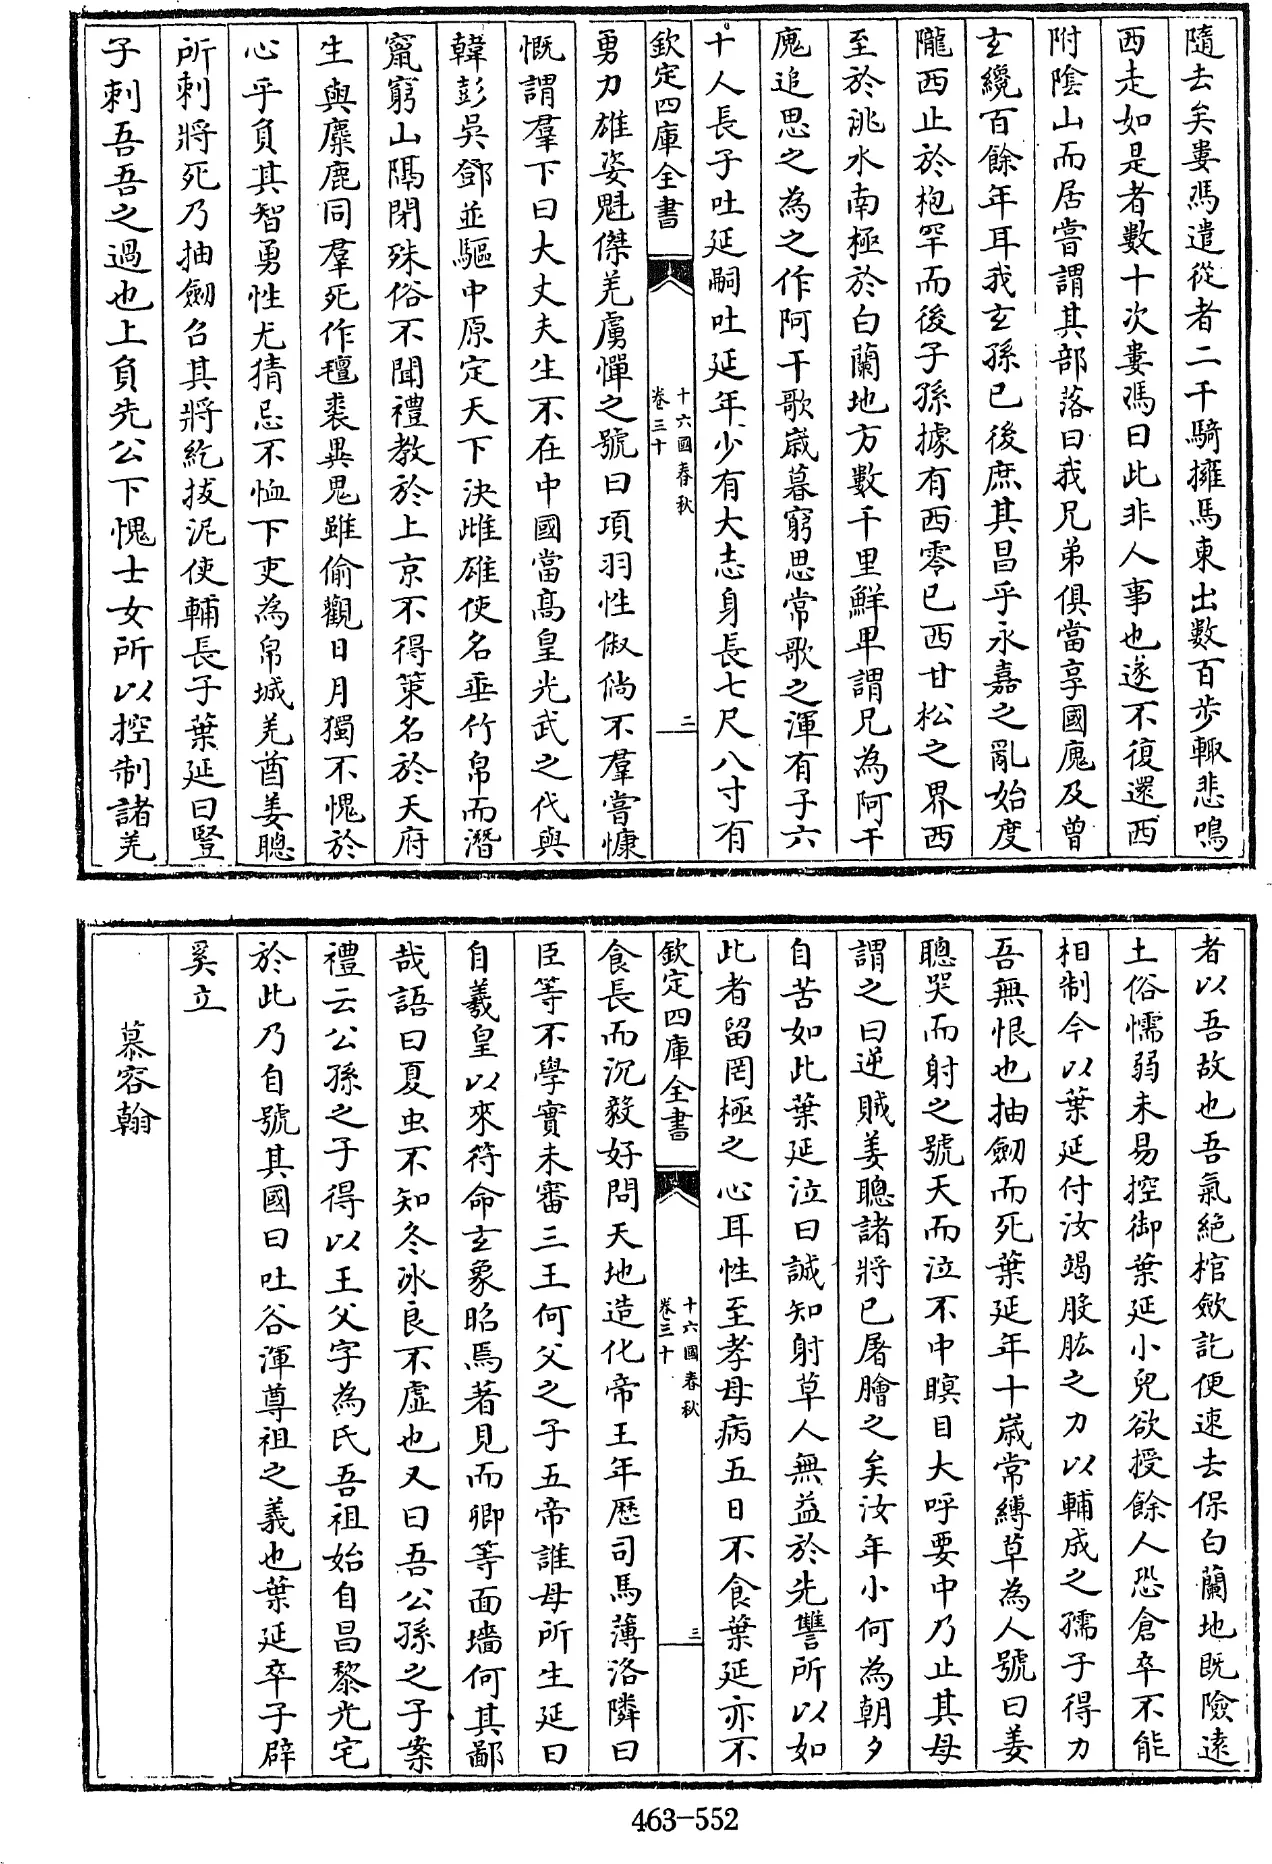 隨去矣婁馮遣從者二千騎擁馬東出數百步輒悲鳴
西走如是者數十次婁馮曰此非人事也遂不復還西
附陰山而居嘗謂其部落曰我兄弟俱當享國廆及曾
玄纔百餘年耳我玄孫已後庶其昌乎永嘉之亂始度
隴西止於枹罕而後子孫據有西零已西甘松之界西
至於洮水南極於白蘭地方數千里鮮卑謂兄為阿干
廆追思之為之作阿干歌歲暮窮思常歌之渾有子六
十人長子吐延嗣吐延年少有大志身長七尺八寸有
欽定四庫全書
十六國春秋
卷三十
二
勇力雄姿魁傑羌虜憚之號曰項羽性俶倘不羣嘗慷
慨謂羣下曰大丈夫生不在中國當高皇光武之代與
韓彭吳鄧並驅中原定天下決雌雄使名垂竹帛而潛
竄窮山隅閉殊俗不聞禮教於上京不得策名於天府
生與麋鹿同羣死作氊裘異鬼雖偷觀日月獨不愧於
心乎負其智勇性尤猜忌不恤下吏為帛城羌酋姜聰
所刺將死乃抽劒召其將紇拔泥使輔長子葉延曰豎
子刺吾吾之過也上負先公下愧士女所以控制諸羌
者以吾故也吾氣絕棺斂訖便速去保白蘭地既險遠
土俗懦弱未易控御葉延小兒欲授餘人恐倉卒不能
相制今以葉延付汝竭股肱之力以輔成之孺子得力
吾無恨也抽劒而死葉延年十歲常縛草為人號曰姜
聰哭而射之號天而泣不中瞑目大呼要中乃止其母
謂之曰逆賊姜聰諸將已屠膾之矣汝年小何為朝夕
自苦如此葉延泣曰誠知射草人無益於先讐所以如
此者留罔極之心耳性至孝母病五日不食葉延亦不
欽定四庫全書
十六國春秋
卷三十
三
食長而沉毅好問天地造化帝王年歷司馬薄洛隣曰
臣等不學實未審三王何父之子五帝誰母所生延曰
自羲皇以來符命玄象昭焉著見而卿等面墻何其鄙
哉語曰夏虫不知冬冰良不虛也又曰吾公孫之子案
禮云公孫之子得以王父字為氏吾祖始自昌黎光宅
於此乃自號其國曰吐谷渾尊祖之義也葉延卒子辟
奚立
慕容翰
463-552